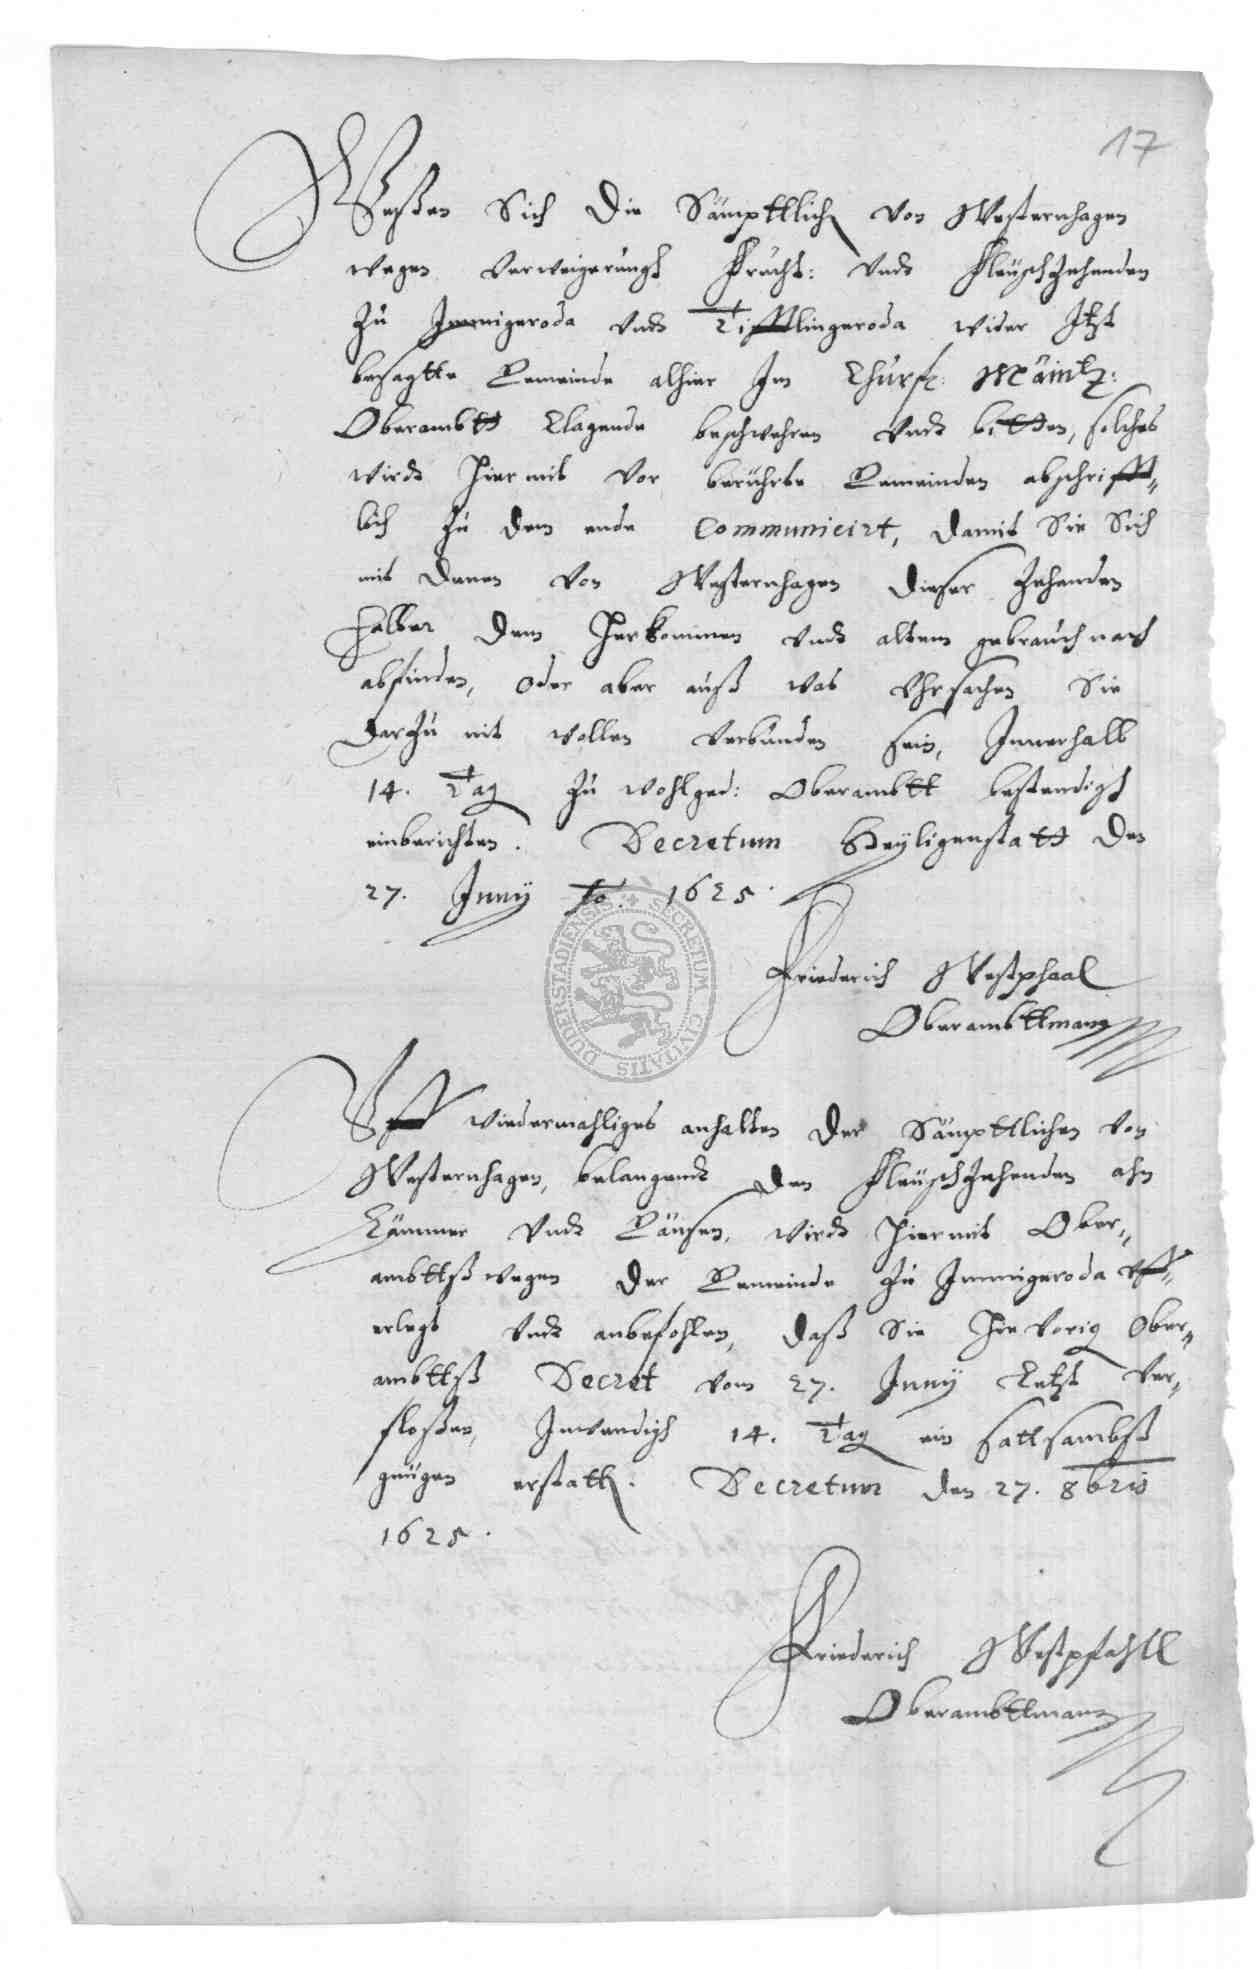 17
Weßen Sich die Sämpttlich von Westernhagen
wegen verweigerungk Frucht: undt Fleyschzehenden
Zu Immigeroda undt Tifftlingeroda wider Itzt
besagtte Gemeinde alhier Im Churf: Mäintz:
Oberambtt Clagende beschwehren undt bitten, solches
wirdt hiermit vor berührte Gemeinden abschrifft=
lich zu dem ende Communicirt, damit Sie Sich
mit denen von Westernhagen dieser Zehenden
halber dem herkommen undt altem gebrauch nach
abfinden, oder aber auß was Uhrsachen Sie
darzu nit wollen verbunden sein, Innerhalb
14. Tag zu wohlged: Oberambtt bestendigk
einberichten. Decretum Heyligenstatt den
27. Juny Ao. 1625.
SECRETUM CIVITATIS DUDERSTADIENSIS
Friederich Westphaal
Oberambttmann
Uff wiedermahliges anhalten der Sämpttlichen von
Westernhagen, belangendt den Fleyschzehenden ahn
Lämmer undt Gänsen, wirdt hiermit Ober=
ambttß wegen der Gemeinde zu Immigeroda uff=
erlegt undt anbefohlen, daß Sie Ihr vorig Ober=
ambttß Decret vom 27. Juny Letzt ver=
floßen, Inwendigk 14. Tag ein sattsambß
gnügen erstatt. Decretum den 27. 8bris
1625.
Friederich Westpfahll
Oberambttmann